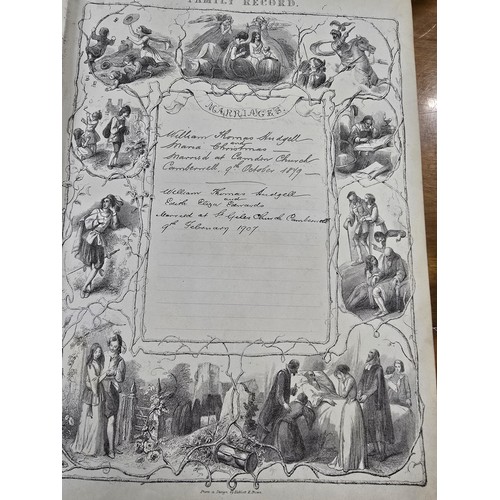 FAMILY RECORD.
MARRIAGES.
William Thomas Hudgell
and
Maria Christmas
Married at Camden Church
Camberwell, 9th October 1879
William Thomas Hudgell
and
Edith Eliza Edwards
Married at St Giles Church Camberwell
9th February 1907